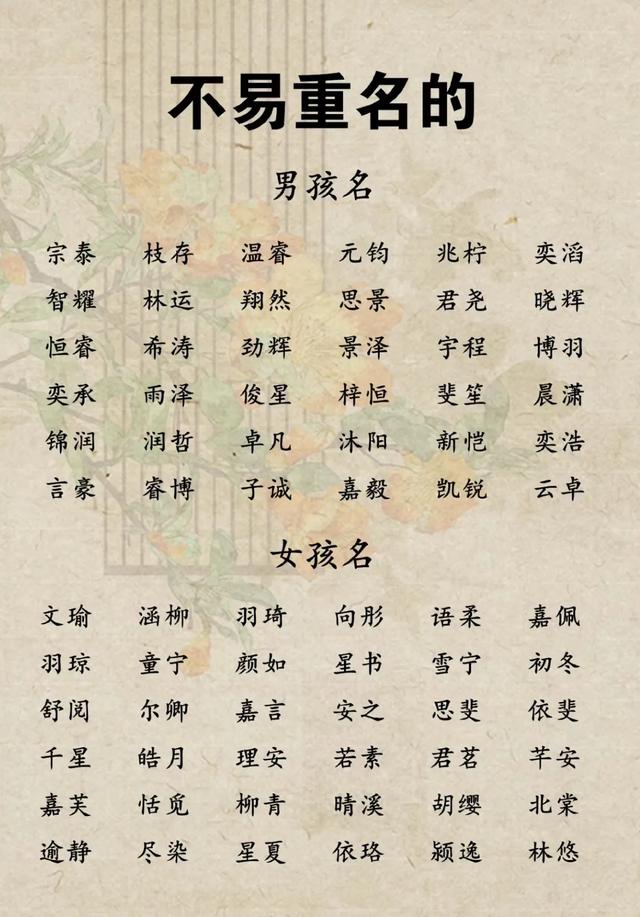 不易重名的
男孩名
宗泰 枝存 温睿 元钧 兆柠 奕滔
智耀 林运 翔然 思景 君尧 晓辉
恒睿 希涛 劲辉 景泽 宇程 博羽
奕承 雨泽 俊星 梓恒 斐笙 晨潇
锦润 润哲 卓凡 沐阳 新恺 奕浩
言豪 睿博 子诚 嘉毅 凯锐 云卓
女孩名
文瑜 涵柳 羽琦 向彤 语柔 嘉佩
羽琼 童宁 颜如 星书 雪宁 初冬
舒阅 尔卿 嘉言 安之 思斐 依斐
千星 皓月 理安 若素 君茗 芊安
嘉芙 恬觅 柳青 晴溪 胡缨 北棠
逾静 尽染 星夏 依珞 颍逸 林悠